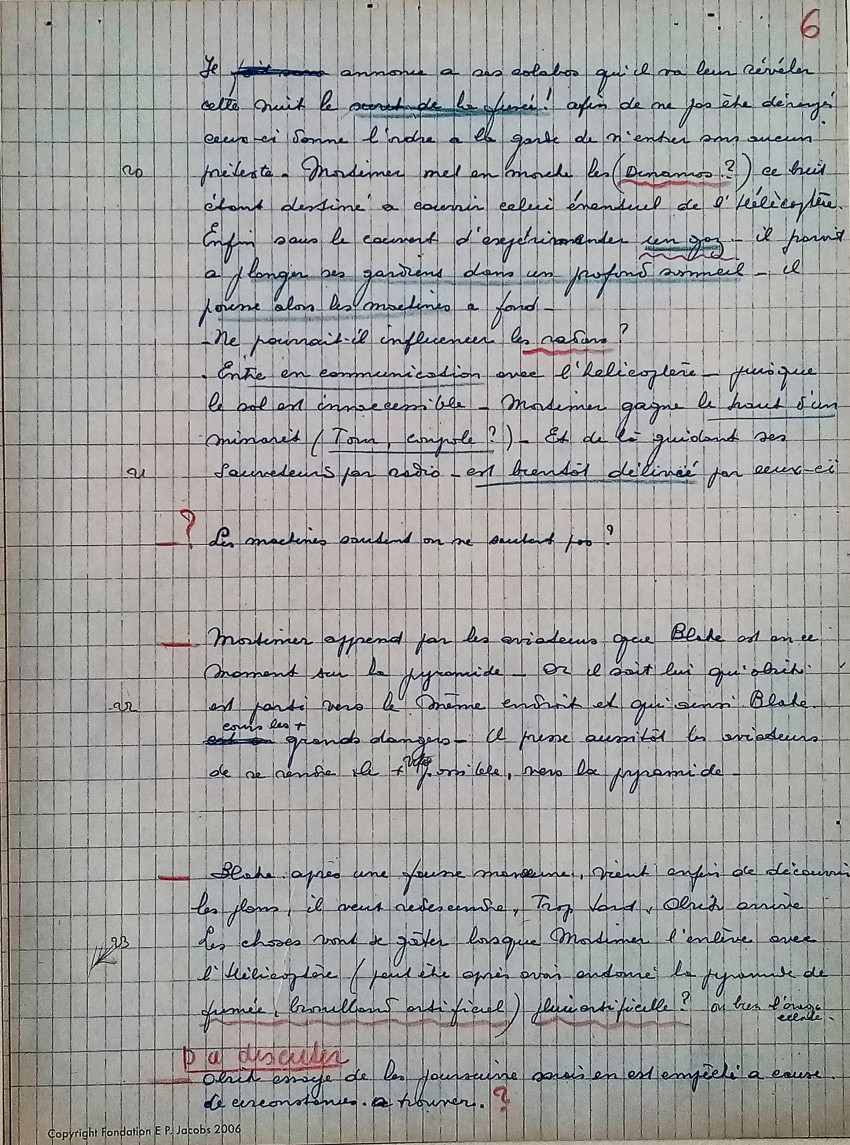 6
Je annonce a ses colabos qu'il va leur révéler
cette nuit le secret de la fusée! afin de ne pas être dérangé
ceux-ci donne l'ordre a la garde de n'entrer sous aucun
20 prétexte - Mortimer met en marche les (Dinamos?) ce bruit
étant destiné a couvrir celui éventuel de l'Hélicoptère.
Enfin sous le couvert d'expérimender un gaz - il parvit
a plonger ses gardiens dans un profond sommeil - il
pousse alors les machines a fond -
- Ne pourrait-il influencer les radars?
- Entre en communication avec l'hélicoptère - puisque
le sol est innaccessible - Mortimer gagne le haut d'un
minaret (Tour, coupole?) - Et de là guidant ses
21 sauveteurs par radio - est bientôt délivré par ceux-ci
- ? Les machines sautent ou ne sautent pas?
- Mortimer apprend par les aviateurs que Blake est en ce
moment sur la pyramide - Or il sait lui qu'olrik
22 est parti vers le même endroit et qu'ainsi Blake
cours les +
grands dangers - Il presse aussitôt les aviateurs
de se rendre le + vite possible, vers la pyramide -
- Blake après une fausse manœuvre, vient enfin de découvrir
les plans, il veut redescendre, Trop tard, Olrik arrive
23 Les choses vont se gâter lorsque Mortimer l'enlève avec
l'Hélicoptère (peut être après avoir entouré la pyramide de
fumée, brouillard artificiel) pluie artificielle? ou bien l'orage
éclate.
D a discuter
- Olrik essaye de les poursuivre mais en est empêché a cause
de circonstances. a trouver. ?
Copyright Fondation E P. Jacobs 2006